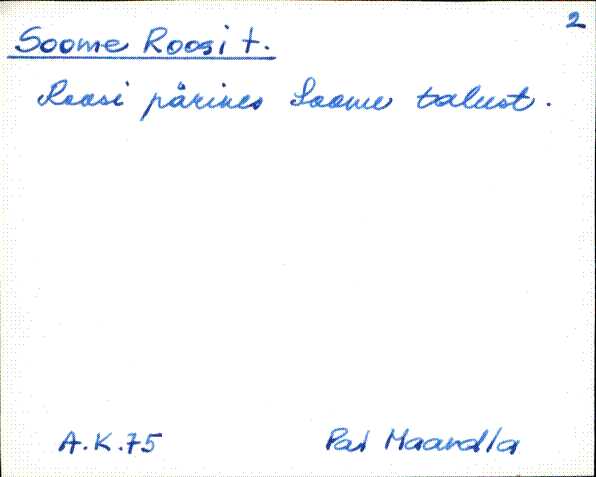 2
Soome Roosi t.
Roosi pärines Soome talust.
A.K.75 Pai Maandla